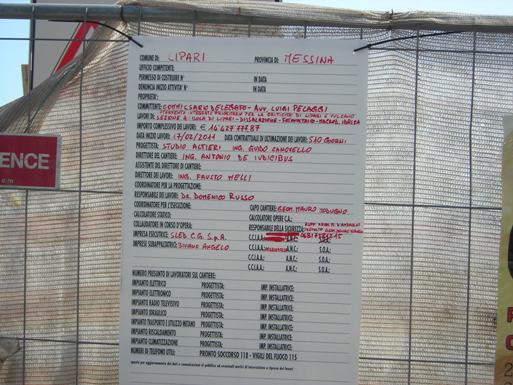 COMUNE DI: LIPARI PROVINCIA DI: MESSINA
UFFICIO COMPETENTE:
PERMESSO DI COSTRUIRE N° IN DATA
DENUNCIA INIZIO ATTIVITA' N° IN DATA
PROPRIETA':
COMMITTENTE: COMMISSARIO DELEGATO - AVV. LUIGI PELAGGI
LAVORI DI:
IMPORTO COMPLESSIVO DEI LAVORI: € 16.427.777,87
DATA INIZIO LAVORI: 17/02/2011 DATA CONTRATTUALE DI ULTIMAZIONE DEI LAVORI: 510 GIORNI
PROGETTISTA: STUDIO ALTIERI - ING. GUIDO ZANOVELLO
DIRETTORE DEL CANTIERE: ING. ANTONIO DE IUDICIBUS
ASSISTENTE DEL DIRETTORE DI CANTIERE:
DIRETTORE DEI LAVORI: ING. FAUSTO MELLI
COORDINATORE PER LA PROGETTAZIONE:
RESPONSABILE DEI LAVORI: DR. DOMENICO RUSSO
COORDINATORE PER L'ESECUZIONE: CAPO CANTIERE: GEOM. MAURO
CALCOLATORE STATICO: CALCOLATORE OPERE C.A.:
COLLAUDATORE IN CORSO D'OPERA: RESPONSABILE DELLA SICUREZZA:
IMPRESA ESECUTRICE: SLED C.G. S.p.A. C.C.I.A.A.: A.N.C.: S.O.A.:
IMPRESE SUBAPPALTATRICI: BIVIANO ANGELO C.C.I.A.A.: A.N.C.: S.O.A.:
C.C.I.A.A.: A.N.C.: S.O.A.:
C.C.I.A.A.: A.N.C.: S.O.A.:
NUMERO PRESUNTO DI LAVORATORI SUL CANTIERE:
IMPIANTO ELETTRICO PROGETTISTA: IMP. INSTALLATRICE:
IMPIANTO ELETTRONICO PROGETTISTA: IMP. INSTALLATRICE:
IMPIANTO RADIO TELEVISIVO PROGETTISTA: IMP. INSTALLATRICE:
IMPIANTO IDRAULICO PROGETTISTA: IMP. INSTALLATRICE:
IMPIANTO TRASPORTO E UTILIZZO METANO PROGETTISTA: IMP. INSTALLATRICE:
IMPIANTO RISCALDAMENTO PROGETTISTA: IMP. INSTALLATRICE:
IMPIANTO CLIMATIZZAZIONE PROGETTISTA: IMP. INSTALLATRICE:
NUMERI DI TELEFONO UTILI: PRONTO SOCCORSO 118 - VIGILI DEL FUOCO 115
ENCE